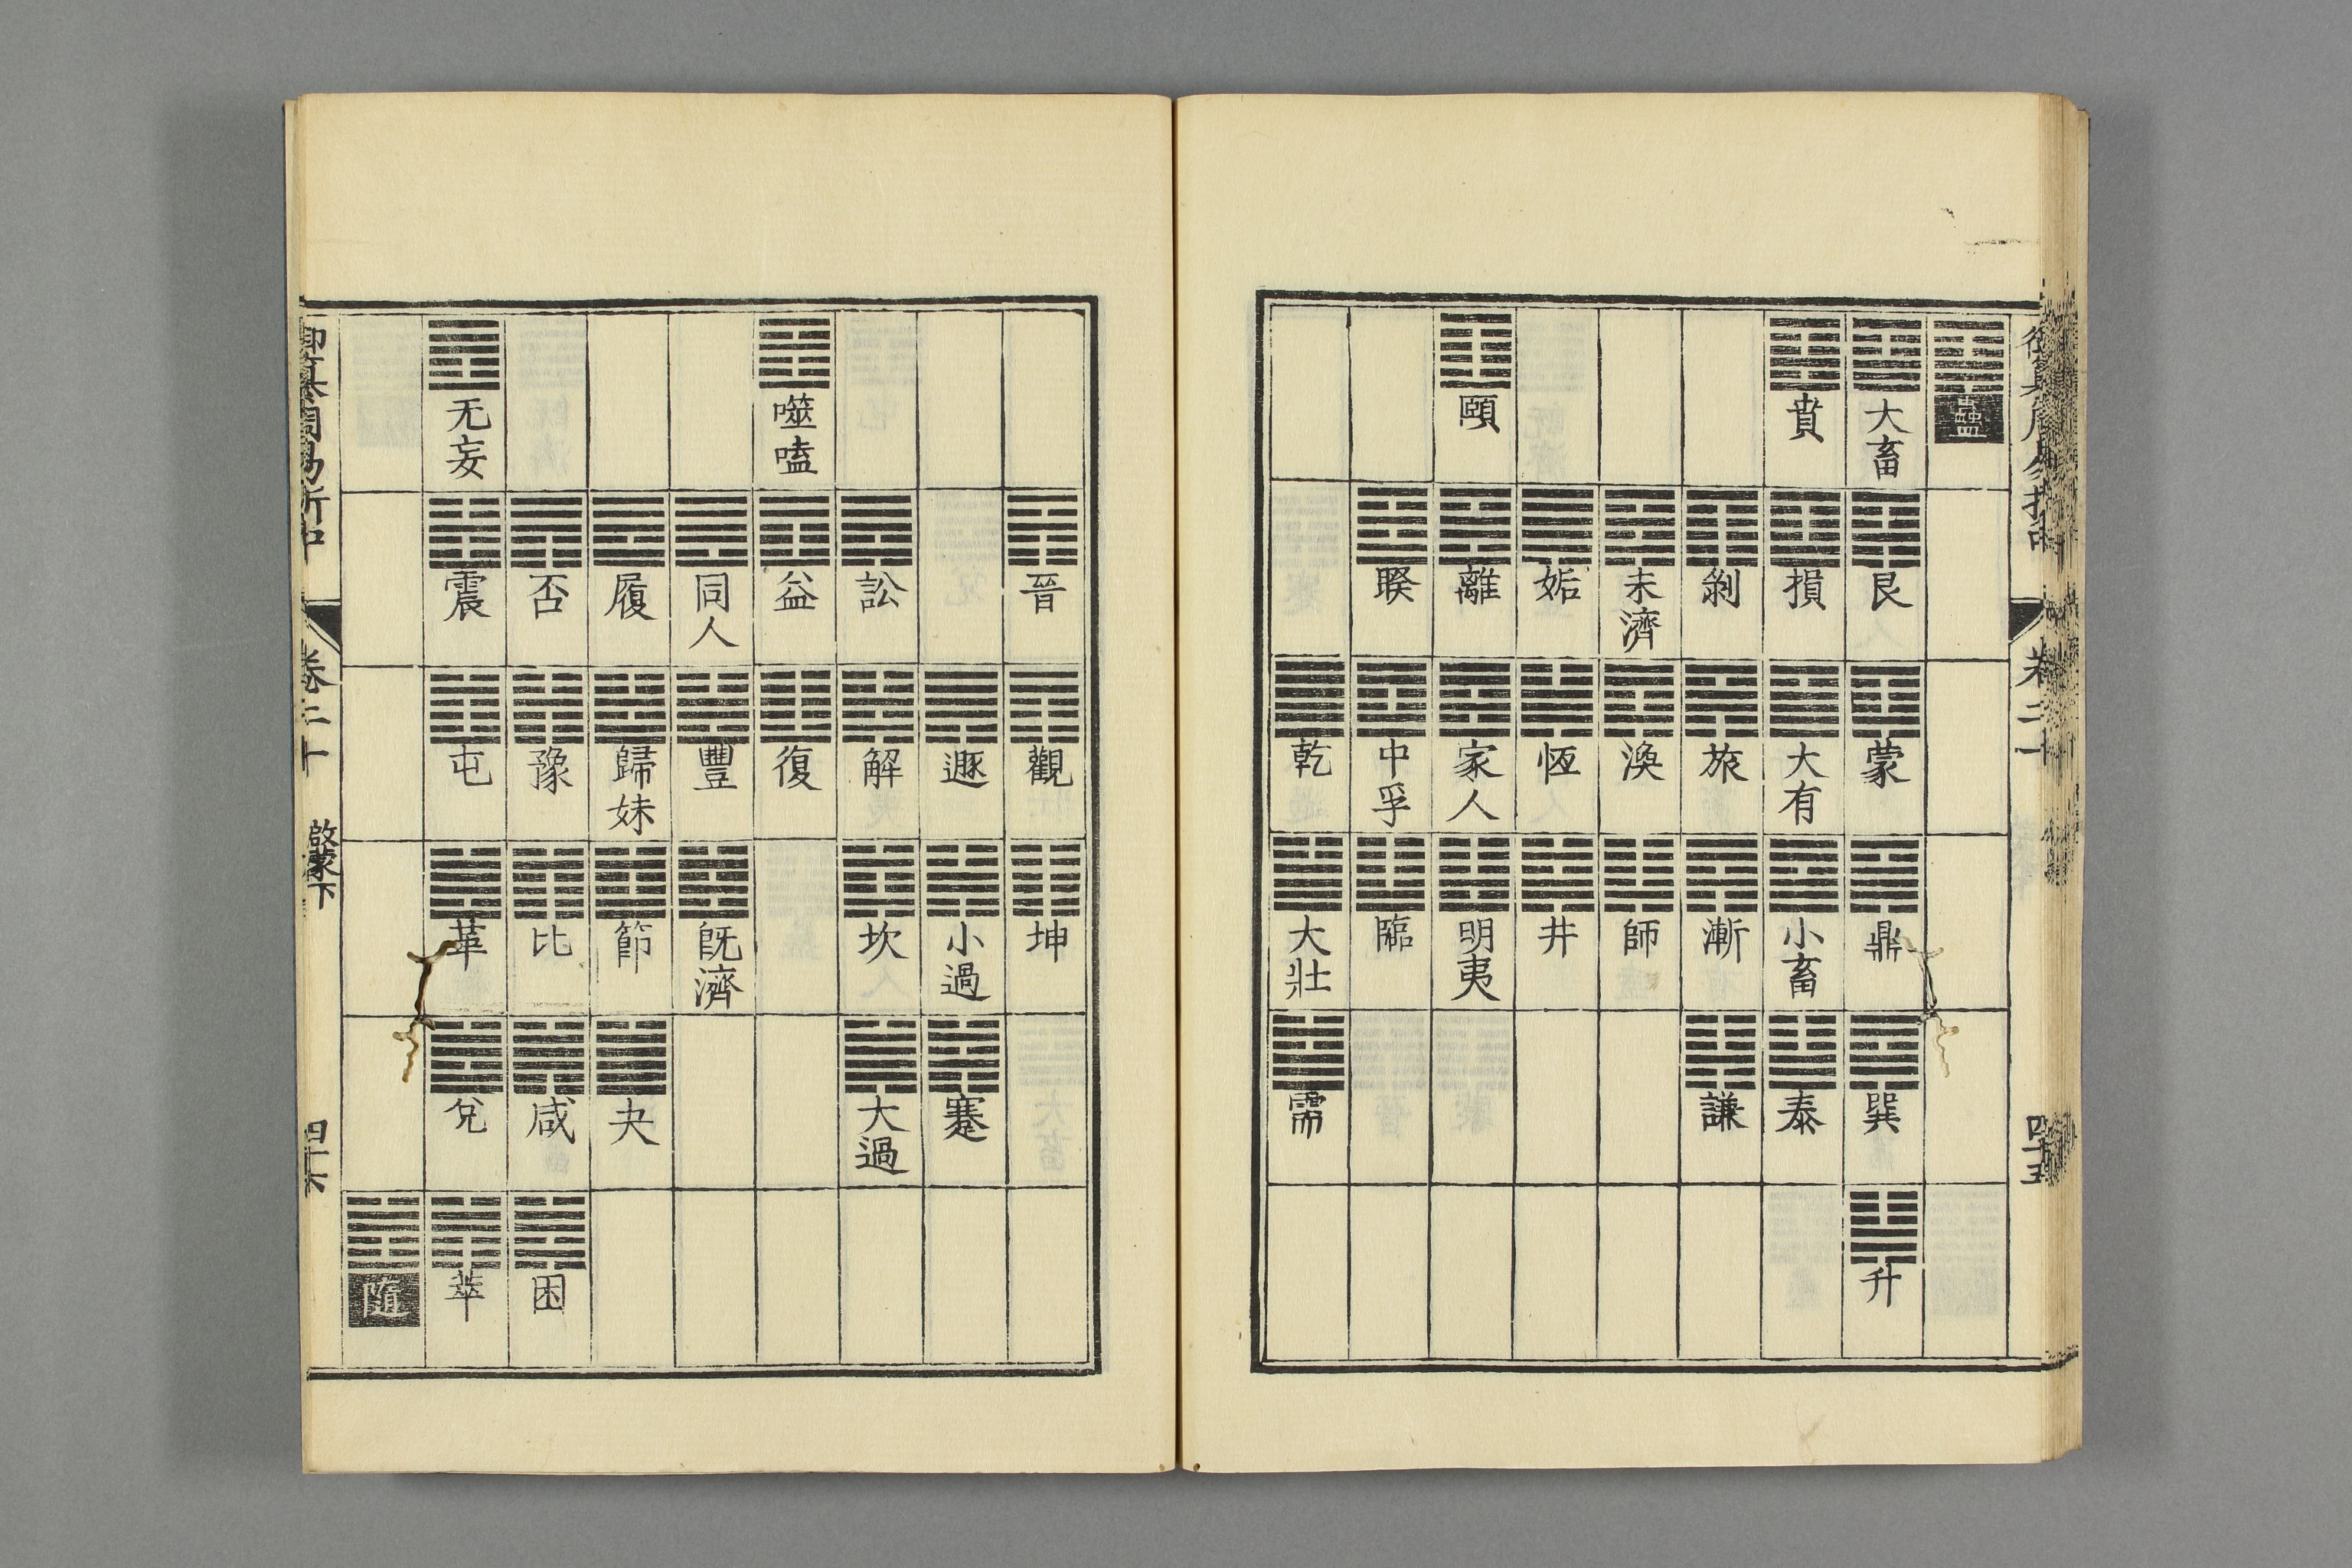 御纂周易折中 卷二十 四十五
蠱
大畜 艮 蒙 鼎 巽 升
賁 損 大有 小畜 泰
剝 旅 漸 謙
未濟 渙 師
姤 恆 井
頤 離 家人 明夷
睽 中孚 臨
乾 大壯 需
晉 觀 坤
遯 小過 蹇
訟 解 坎 大過
噬嗑 益 復
同人 豐 旣濟
履 歸妹 節 夬
否 豫 比 咸 困
无妄 震 屯 革 兌 萃
隨
御纂周易折中 卷二十 啟蒙下 四十六